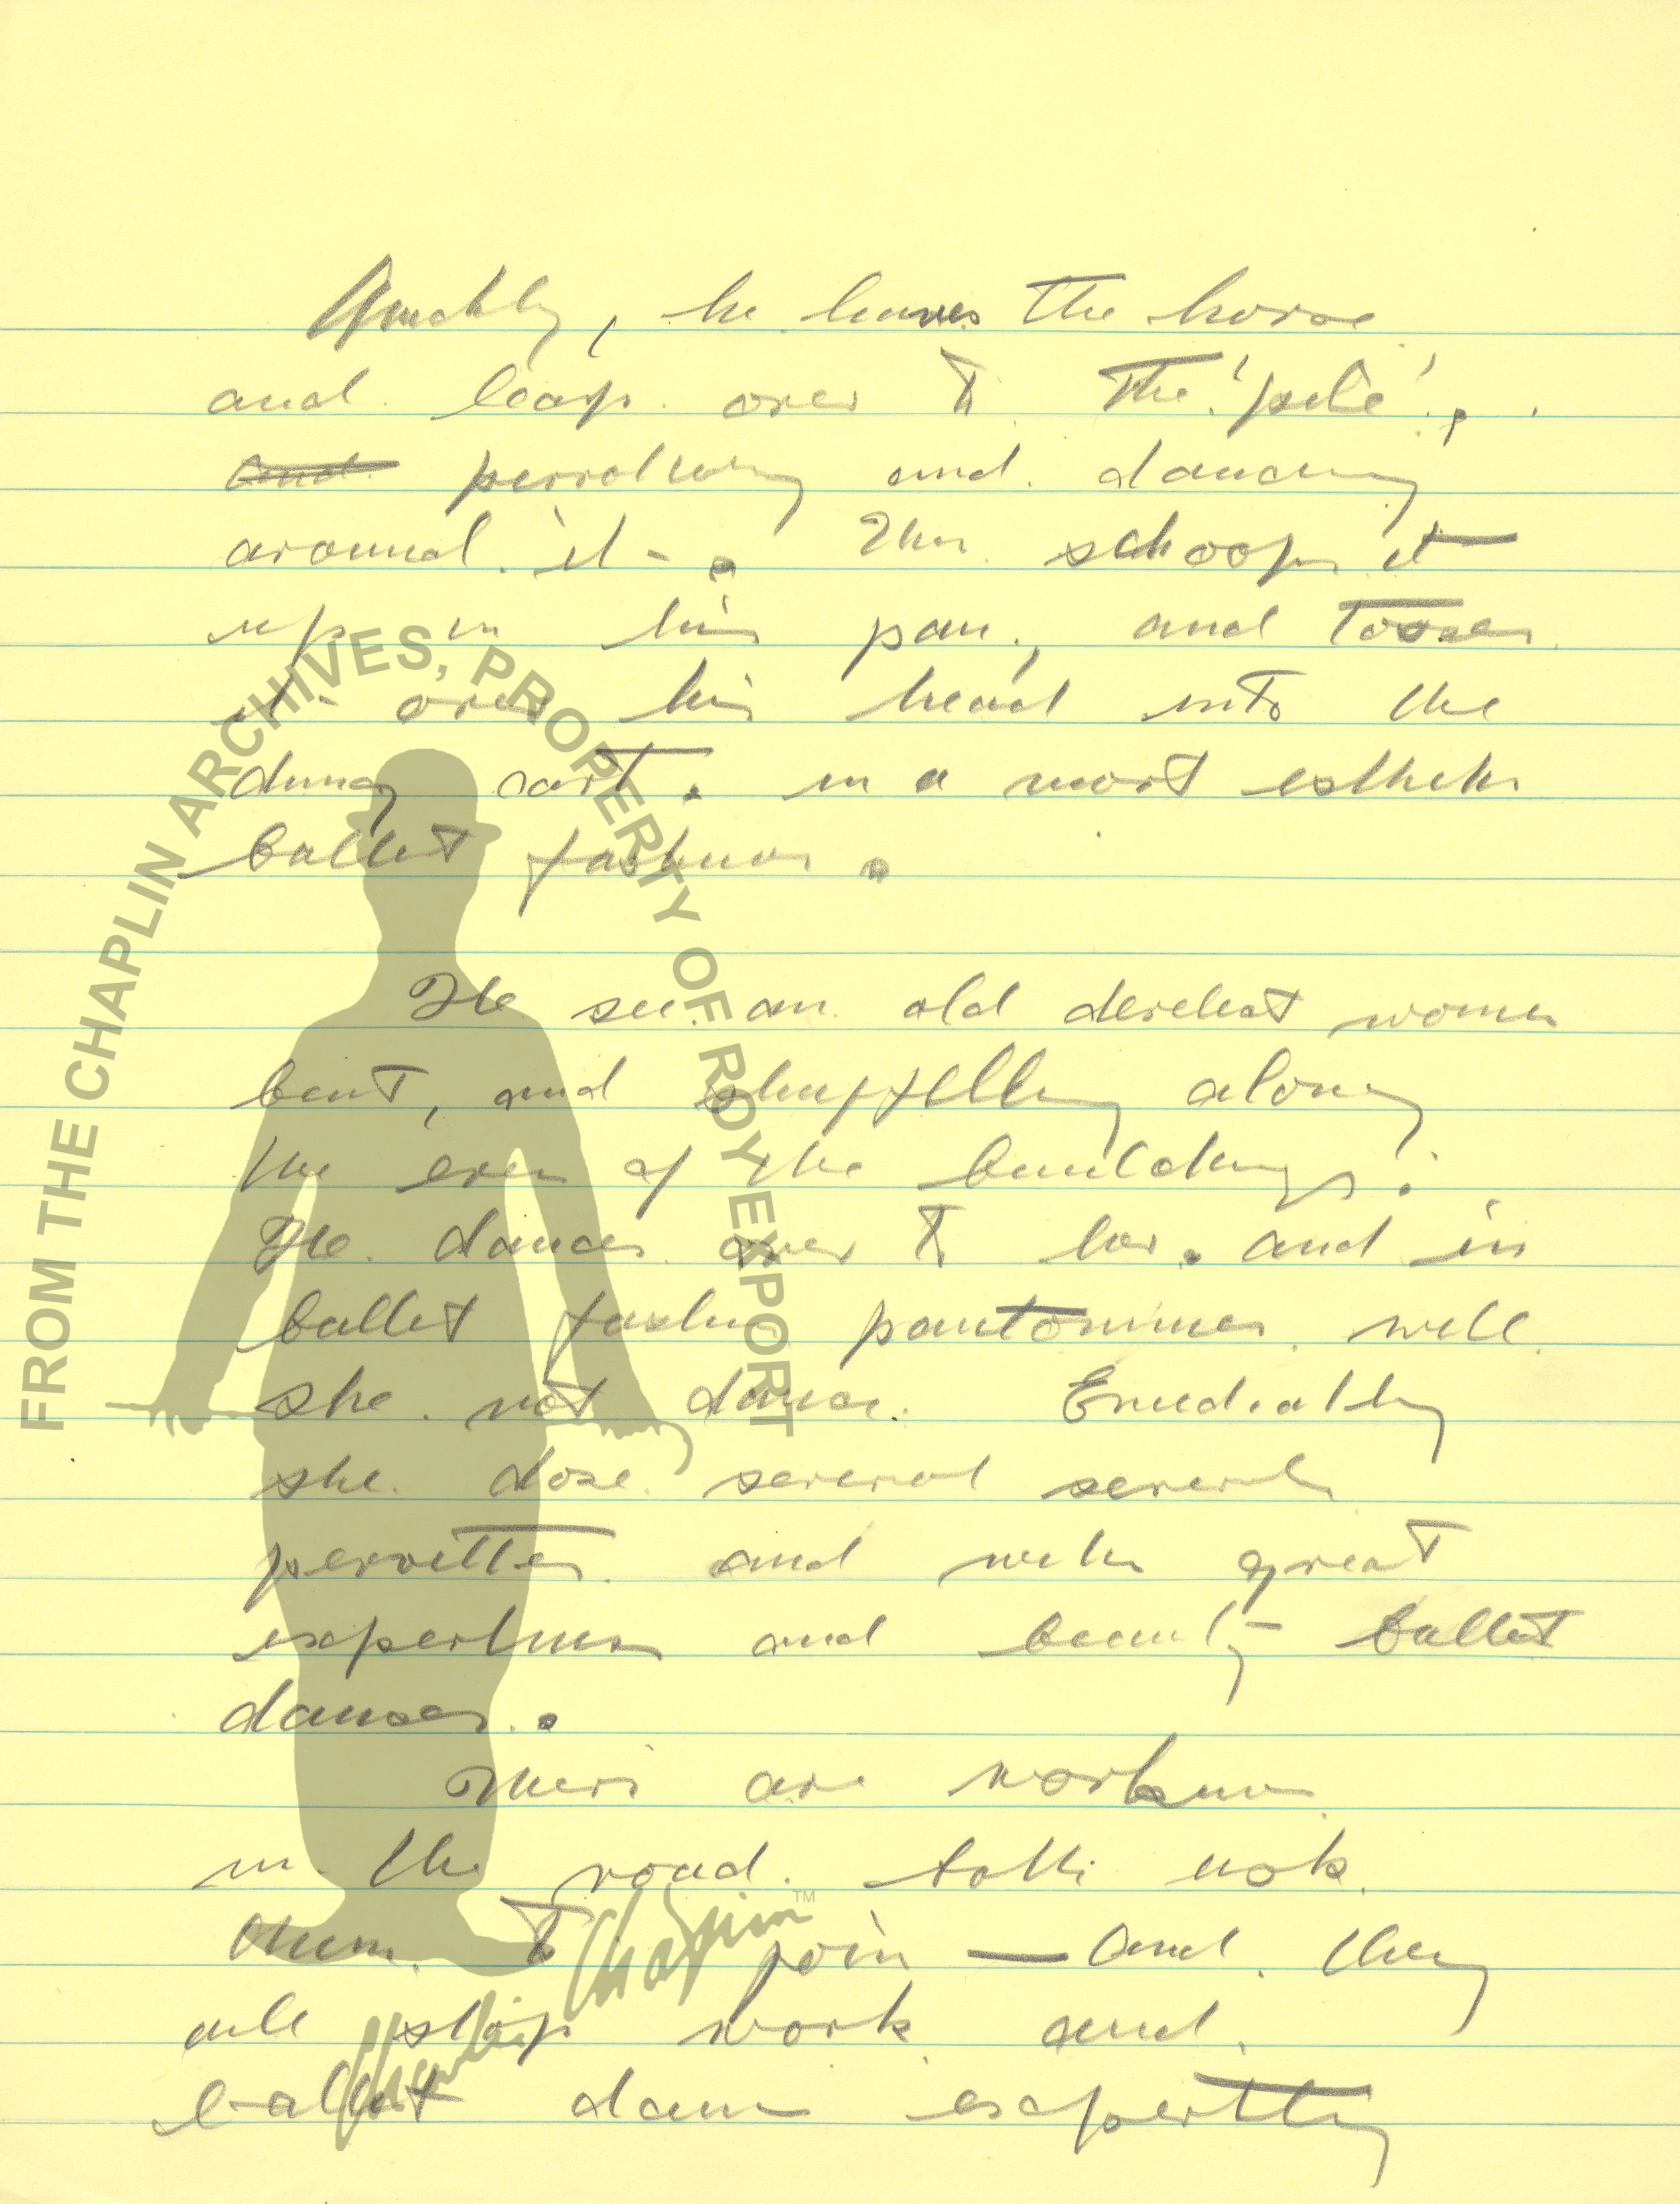 Quickly, he leaves the horse
and leap over to the 'pile',
and perrolting and dancing
around it - . Then schoops it
up in his pan, and tosses
it over his head into the
dung cart. in a most esthetic
ballet fashion.
He see an old derelect women
bent, and shuffelling along
the of the buildings.
He dances over to her. and in
ballet fashion pantomimes will
she not dance. Emediatly
she dose several several
pervittes and with great
expertness and beauty ballet
danses.
There are workmen
in the road. ask
them to join — and they
all stop work and
ballet dance expertly
FROM THE CHAPLIN ARCHIVES, PROPERTY OF ROY EXPORT
Charlie Chaplin™